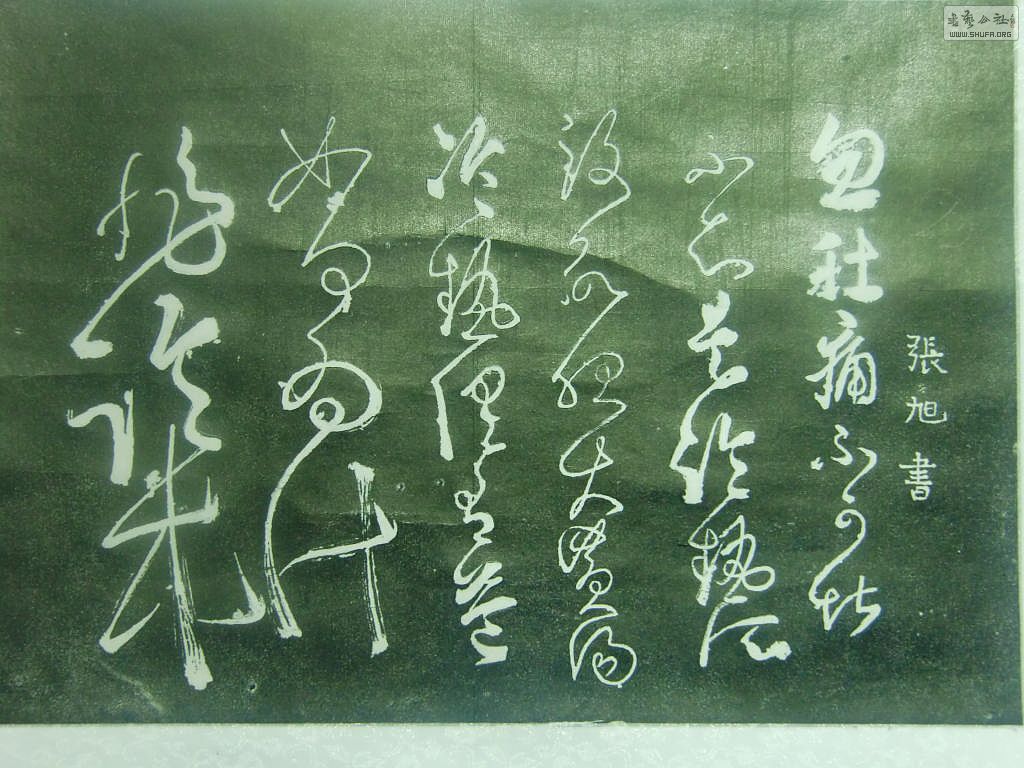 書藝公社
WWW.SHUFA.ORG
張旭書
忽肚痛不可堪
不知是冷熱所
致欲服大黃湯
冷熱俱有益
如何為計
非臨床